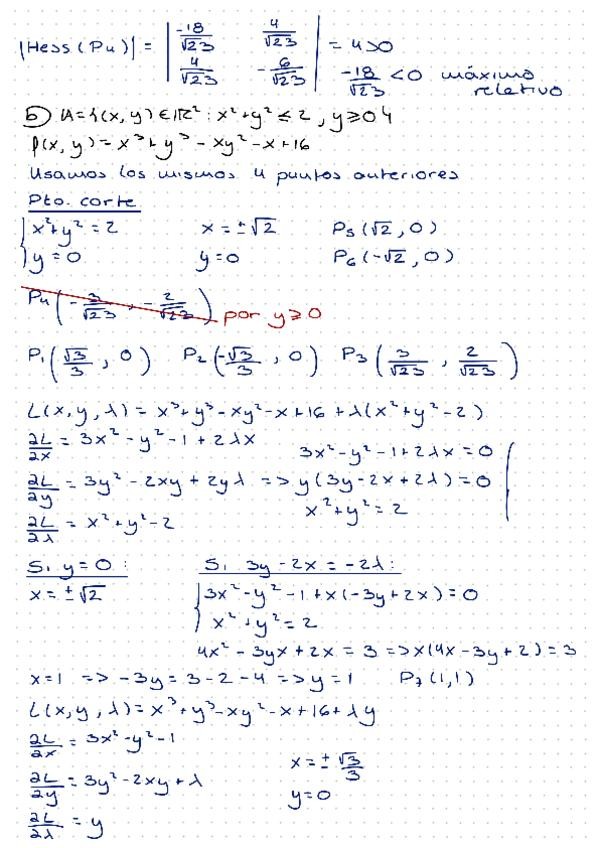 |Hess(P4)| = | -18/√23 4/√23 ; 4/√23 -6/√23 | = 4>0
-18/√23 < 0 máximo relativo
b) A={(x,y)∈ℝ²: x²+y² ≤ 2, y≥0}
f(x,y) = x³+y³-xy²-x+16
Usamos los mismos 4 puntos anteriores
Pto. corte
{ x²+y²=2 x=±√2 P5(√2, 0)
y=0 y=0 P6(-√2, 0)
P4(-3/√23, -2/√23) por y≥0
P1(√3/3, 0) P2(-√3/3, 0) P3(3/√23, 2/√23)
L(x,y,λ) = x³+y³-xy²-x+16+λ(x²+y²-2)
∂L/∂x = 3x²-y²-1+2λx 3x²-y²-1+2λx=0
∂L/∂y = 3y²-2xy+2yλ => y(3y-2x+2λ)=0
∂L/∂λ = x²+y²-2 x²+y²=2
Si y=0: Si 3y-2x=-2λ:
x=±√2 { 3x²-y²-1+x(-3y+2x)=0
x²+y²=2
4x²-3yx+2x=3 => x(4x-3y+2)=3
x=1 => -3y=3-2-4 => y=1 P7(1,1)
L(x,y,λ)=x³+y³-xy²-x+16+λy
∂L/∂x = 3x²-y²-1
x=±√3/3
∂L/∂y = 3y²-2xy+λ
y=0
∂L/∂λ = y